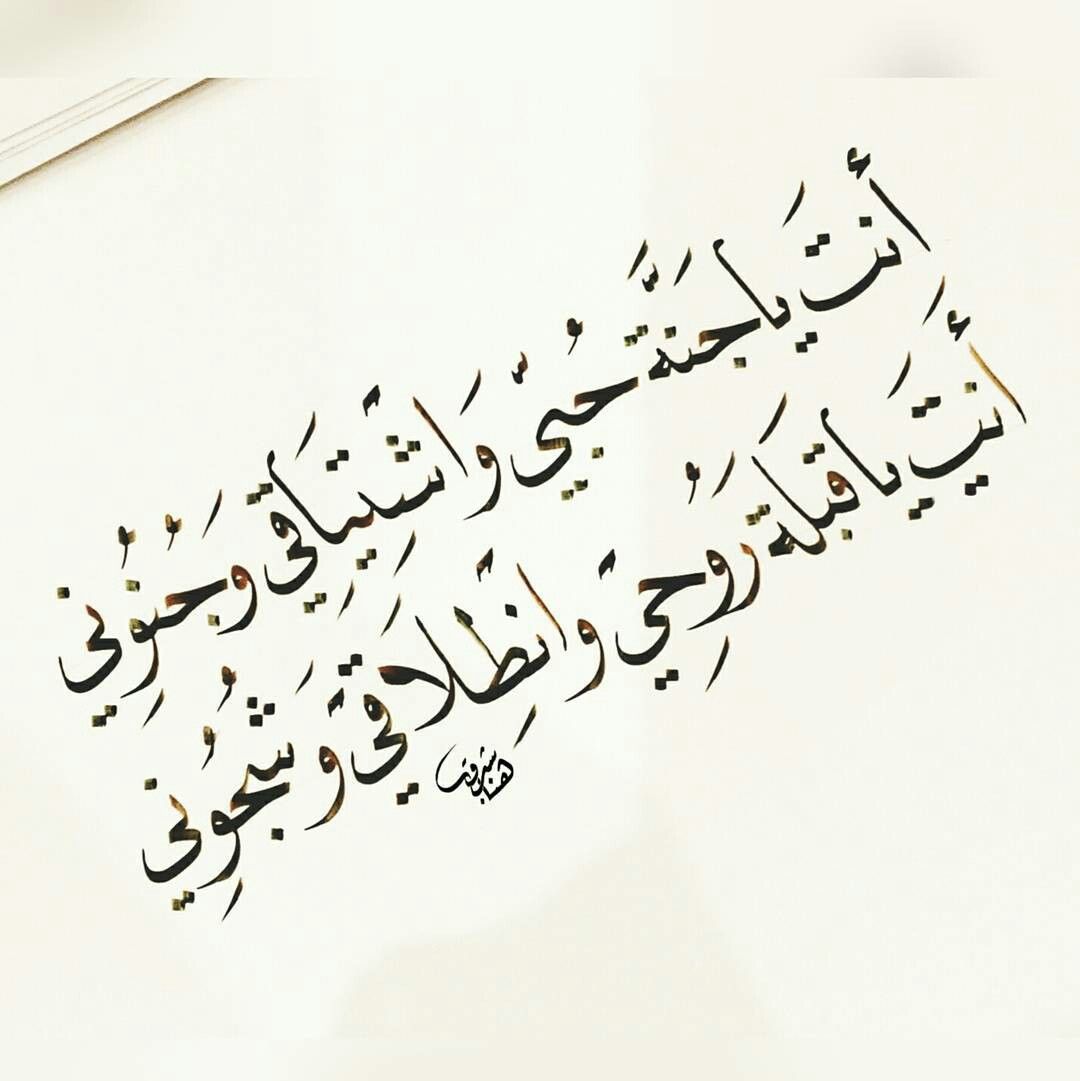 أنتَ يا جنَّةَ حُبيّ وَاشْتيَاقي وَجُنُوني
أنتَ يا قبلَةَ رُوحي وانْطِلَاقي وَشُجُوني